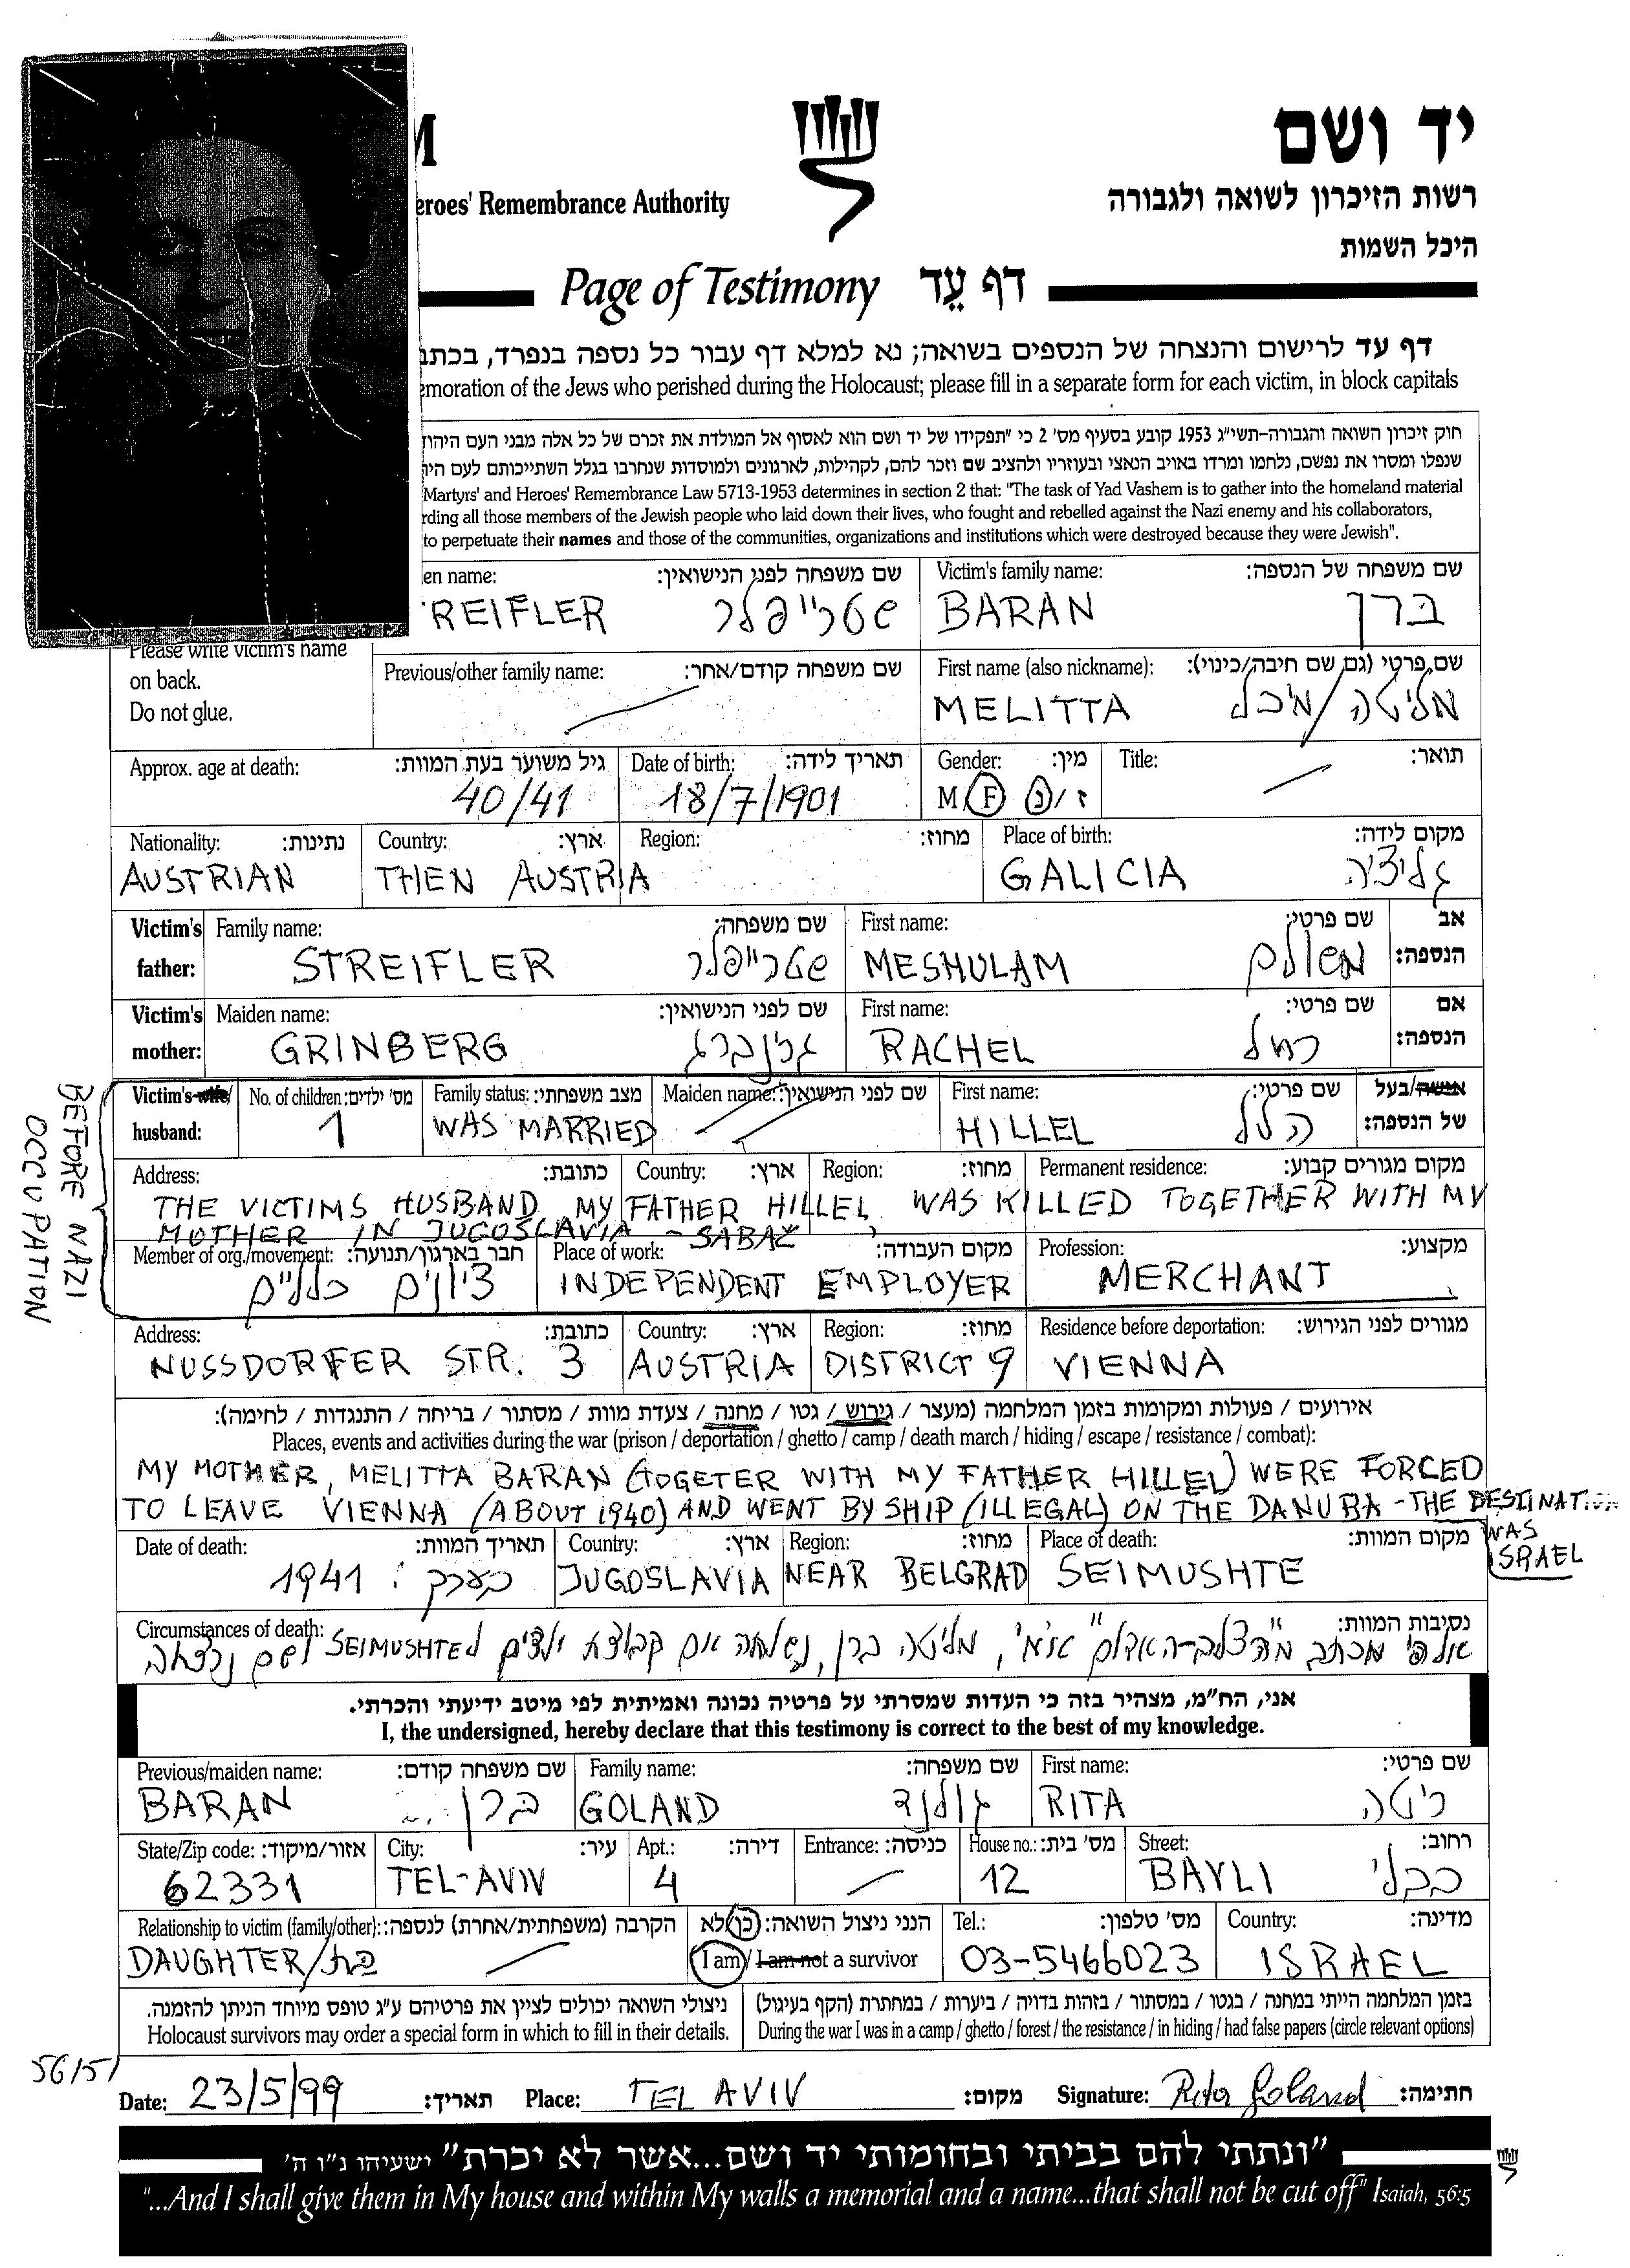 M
יד ושם
eroes' Remembrance Authority
רשות הזיכרון לשואה ולגבורה
היכל השמות
Page of Testimony דף עֵד
דף עד לרישום והנצחה של הנספים בשואה; נא למלא דף עבור כל נספה בנפרד, בכתב
emoration of the Jews who perished during the Holocaust; please fill in a separate form for each victim, in block capitals
חוק זיכרון השואה והגבורה-תשי"ג 1953 קובע בסעיף מס' 2 כי "תפקידו של יד ושם הוא לאסוף אל המולדת את זכרם של כל אלה מבני העם היהוד
שנפלו ומסרו את נפשם, נלחמו ומרדו באויב הנאצי ובעוזריו ולהציב שם וזכר להם, לקהילות, לארגונים ולמוסדות שנחרבו בגלל השתייכותם לעם היה
Martyrs' and Heroes' Remembrance Law 5713-1953 determines in section 2 that: "The task of Yad Vashem is to gather into the homeland material
rding all those members of the Jewish people who laid down their lives, who fought and rebelled against the Nazi enemy and his collaborators,
to perpetuate their names and those of the communities, organizations and institutions which were destroyed because they were Jewish".
en name: שם משפחה לפני הנישואין: Victim's family name: שם משפחה של הנספה:
REIFLER שטרייפלר BARAN ברן
Please write victim's name
on back.
Do not glue.
Previous/other family name: שם משפחה קודם/אחר: First name (also nickname): שם פרטי (גם שם חיבה/כינוי):
MELITTA מליטה/מיכל
Approx. age at death: גיל משוער בעת המוות: Date of birth: תאריך לידה: Gender: מין: Title: תואר:
40/41 18/7/1901 M/F ז/נ
Nationality: נתינות: Country: ארץ: Region: מחוז: Place of birth: מקום לידה:
AUSTRIAN THEN AUSTRIA GALICIA גליציה
Victim's father: Family name: שם משפחה: First name: שם פרטי: אב הנספה:
STREIFLER שטרייפלר MESHULAM משולם
Victim's mother: Maiden name: שם לפני הנישואין: First name: שם פרטי: אם הנספה:
GRINBERG גרינברג RACHEL רחל
Victim's wife/ husband: No. of children: מס' ילדים: Family status: מצב משפחתי: Maiden name: שם לפני הנישואין: First name: שם פרטי: אשה/בעל של הנספה:
1 WAS MARRIED HILLEL הלל
BEFORE NAZI
OCCUPATION
Address: כתובת: Country: ארץ: Region: מחוז: Permanent residence: מקום מגורים קבוע:
THE VICTIMS HUSBAND, MY FATHER HILLEL, WAS KILLED TOGETHER WITH MY
MOTHER IN JUGOSLAVIA - SABAČ
Member of org./movement: חבר בארגון/תנועה: Place of work: מקום העבודה: Profession: מקצוע:
ציונים כלליים INDEPENDENT EMPLOYER MERCHANT
Address: כתובת: Country: ארץ: Region: מחוז: Residence before deportation: מגורים לפני הגירוש:
NUSSDORFER STR. 3 AUSTRIA DISTRICT 9 VIENNA
אירועים / פעולות ומקומות בזמן המלחמה (מעצר / גירוש / גטו / מחנה / צעדת מוות / מסתור / בריחה / התנגדות / לחימה):
Places, events and activities during the war (prison / deportation / ghetto / camp / death march / hiding / escape / resistance / combat):
MY MOTHER, MELITTA BARAN (TOGETER WITH MY FATHER HILLEL) WERE FORCED
TO LEAVE VIENNA (ABOUT 1940) AND WENT BY SHIP (ILLEGAL) ON THE DANUBA - THE DESTINATION
WAS
ISRAEL
Date of death: תאריך המוות: Country: ארץ: Region: מחוז: Place of death: מקום המוות:
1941 בערך: JUGOSLAVIA NEAR BELGRAD SEIMUSHTE
Circumstances of death: נסיבות המוות:
מכתב מ"הצלב-האדום" אמי, מליטה ברן, נשלחה עם קבוצת ילדים ל SEIMUSHTE ושם נרצחה
אני, הח"מ, מצהיר בזה כי העדות שמסרתי על פרטיה נכונה ואמיתית לפי מיטב ידיעתי והכרתי.
I, the undersigned, hereby declare that this testimony is correct to the best of my knowledge.
Previous/maiden name: שם משפחה קודם: Family name: שם משפחה: First name: שם פרטי:
BARAN ברן GOLAND גולנד RITA ריטה
State/Zip code: אזור/מיקוד: City: עיר: Apt.: דירה: Entrance: כניסה: House no.: מס' בית: Street: רחוב:
62331 TEL-AVIV 4 12 BAVLI בבלי
Relationship to victim (family/other): הקרבה (משפחתית/אחרת) לנספה: הנני ניצול השואה: כן/לא Tel.: מס' טלפון: Country: מדינה:
DAUGHTER/בת I am / I am not a survivor 03-5466023 ISRAEL
ניצולי השואה יכולים לציין את פרטיהם ע"ג טופס מיוחד הניתן להזמנה.
Holocaust survivors may order a special form in which to fill in their details.
בזמן המלחמה הייתי במחנה / בגטו / במסתור / בזהות בדויה / ביערות / במחתרת (הקף בעיגול)
During the war I was in a camp / ghetto / forest / the resistance / in hiding / had false papers (circle relevant options)
56/51
Date: 23/5/99 תאריך: Place: TEL AVIV מקום: Signature: Rita Goland חתימה:
"ונתתי להם בביתי ובחומותי יד ושם...אשר לא יכרת" ישעיהו נ"ו ה'
"...And I shall give them in My house and within My walls a memorial and a name...that shall not be cut off" Isaiah, 56:5